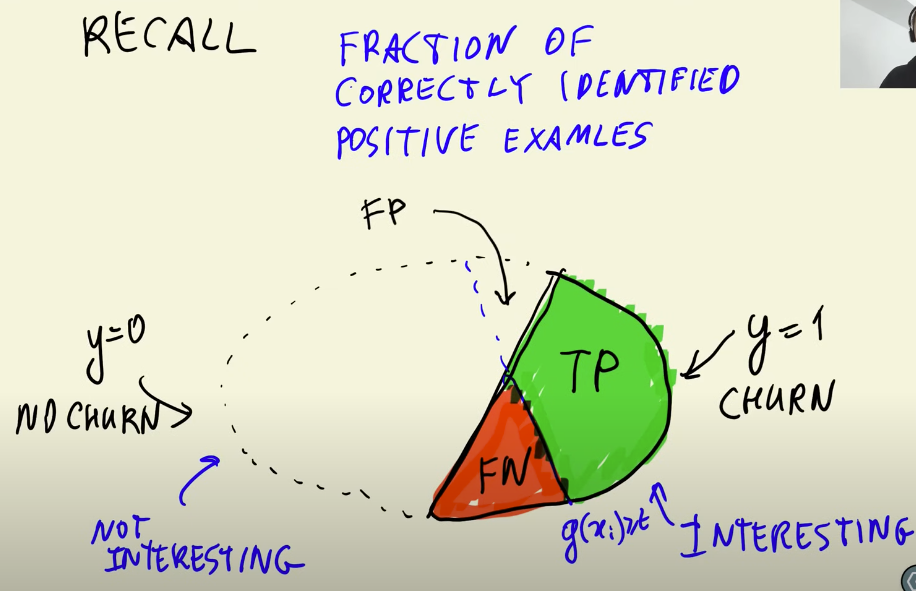 RECALL
FRACTION OF
CORRECTLY IDENTIFIED
POSITIVE EXAMLES
FP
y=0
NO CHURN
TP
y=1
CHURN
FN
NOT
INTERESTING
g(xi)≥t
INTERESTING